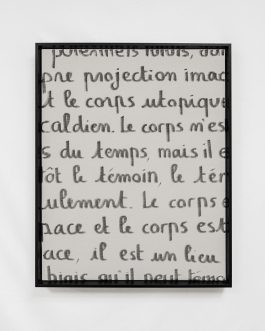 potentiels futurs, dor
pre projection imac
t le corps utopique
caldien. Le corps n'es
s du temps, mais il e
ôt le témoin, le tér
ulement. Le corps e
pace et le corps est
ace, il est un lieu
biais qu'il peut témo